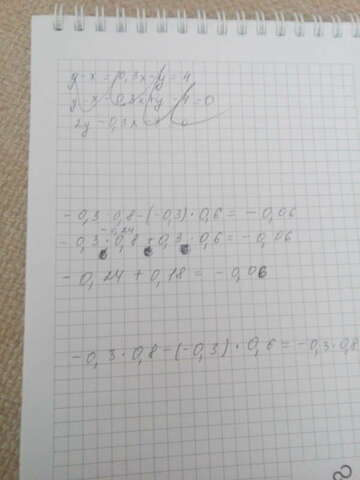 y-x=0,3x-y=4
2y-0,3x
-0,3·0,8-(-0,3)·0,6=-0,06
-0,24
-0,3·0,8+0,3·0,6=-0,06
-0,24+0,18=-0,06
-0,3·0,8-(-0,3)·0,6=-0,3·0,8